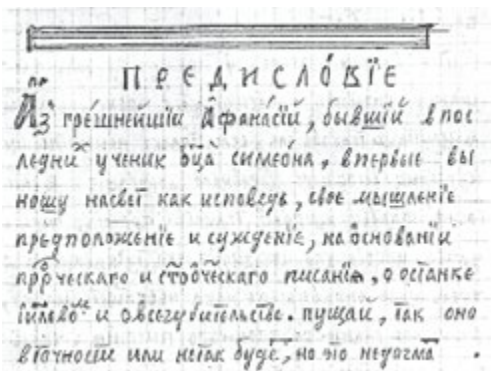 пр
ПРЕДИСЛО́ВЇЕ
Аз̾ грѣ́шнейшїй Аѳана́сїй, бывшїй в пос
ледниⷯ ученик ѻц҃а симео́на, впервые вы
ношу насвет как исповедь, свое мышленїе
предположенїе и сужденїе, на основанїй
прⷪ҇ческаго и ст҃оѻ҃ческаго писанїѧ, о останке
и овсегубительстве. пущай, так оно
вточности или нетак будет, но это недогма .